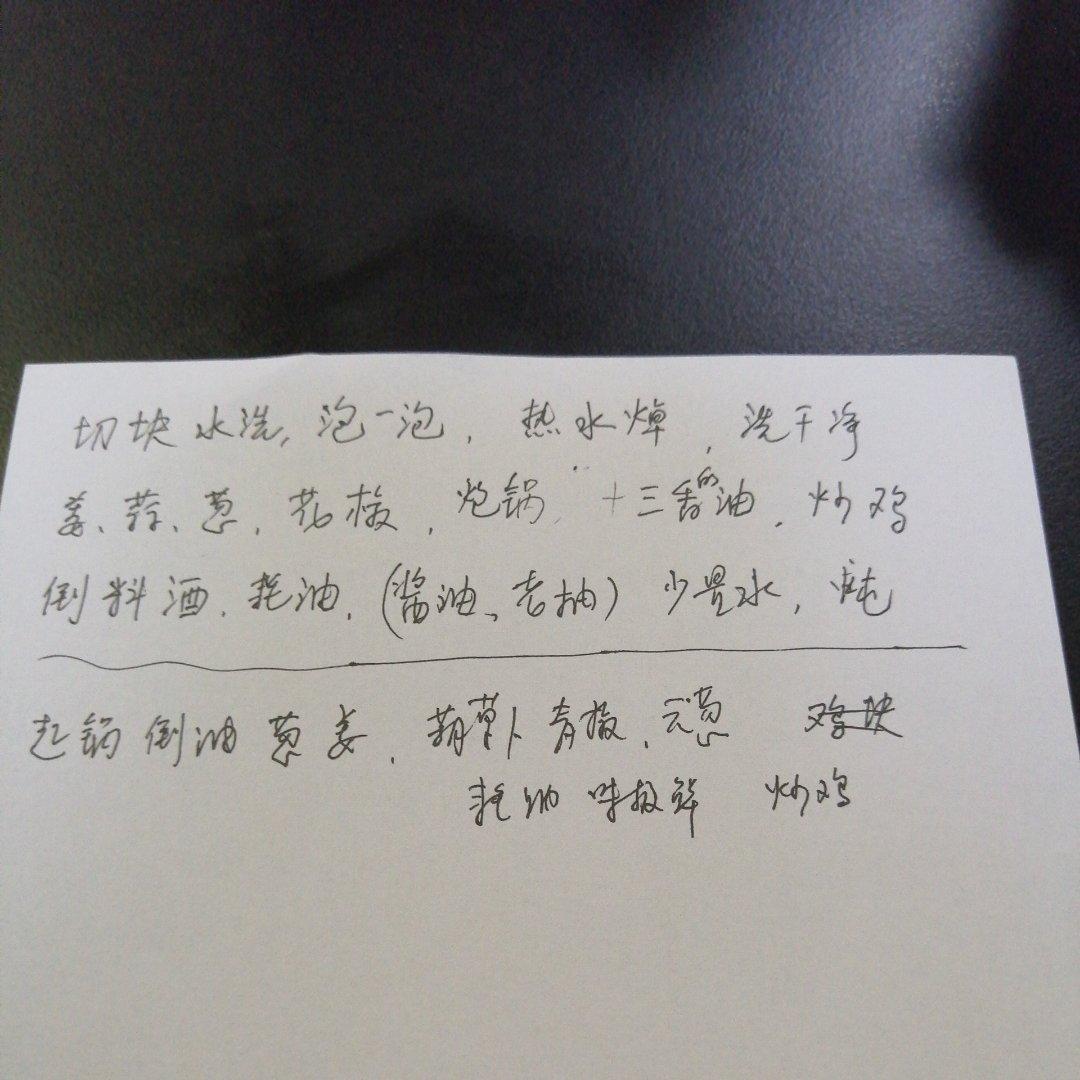 切块水洗,泡一泡,热水焯,洗干净
姜、蒜、葱,花椒,炝锅,十三香的油,炒鸡
倒料酒,耗油,(酱油、老抽)少量水,炖
起锅倒油葱姜,胡萝卜青椒,元葱 鸡块
耗油 味极鲜 炒鸡